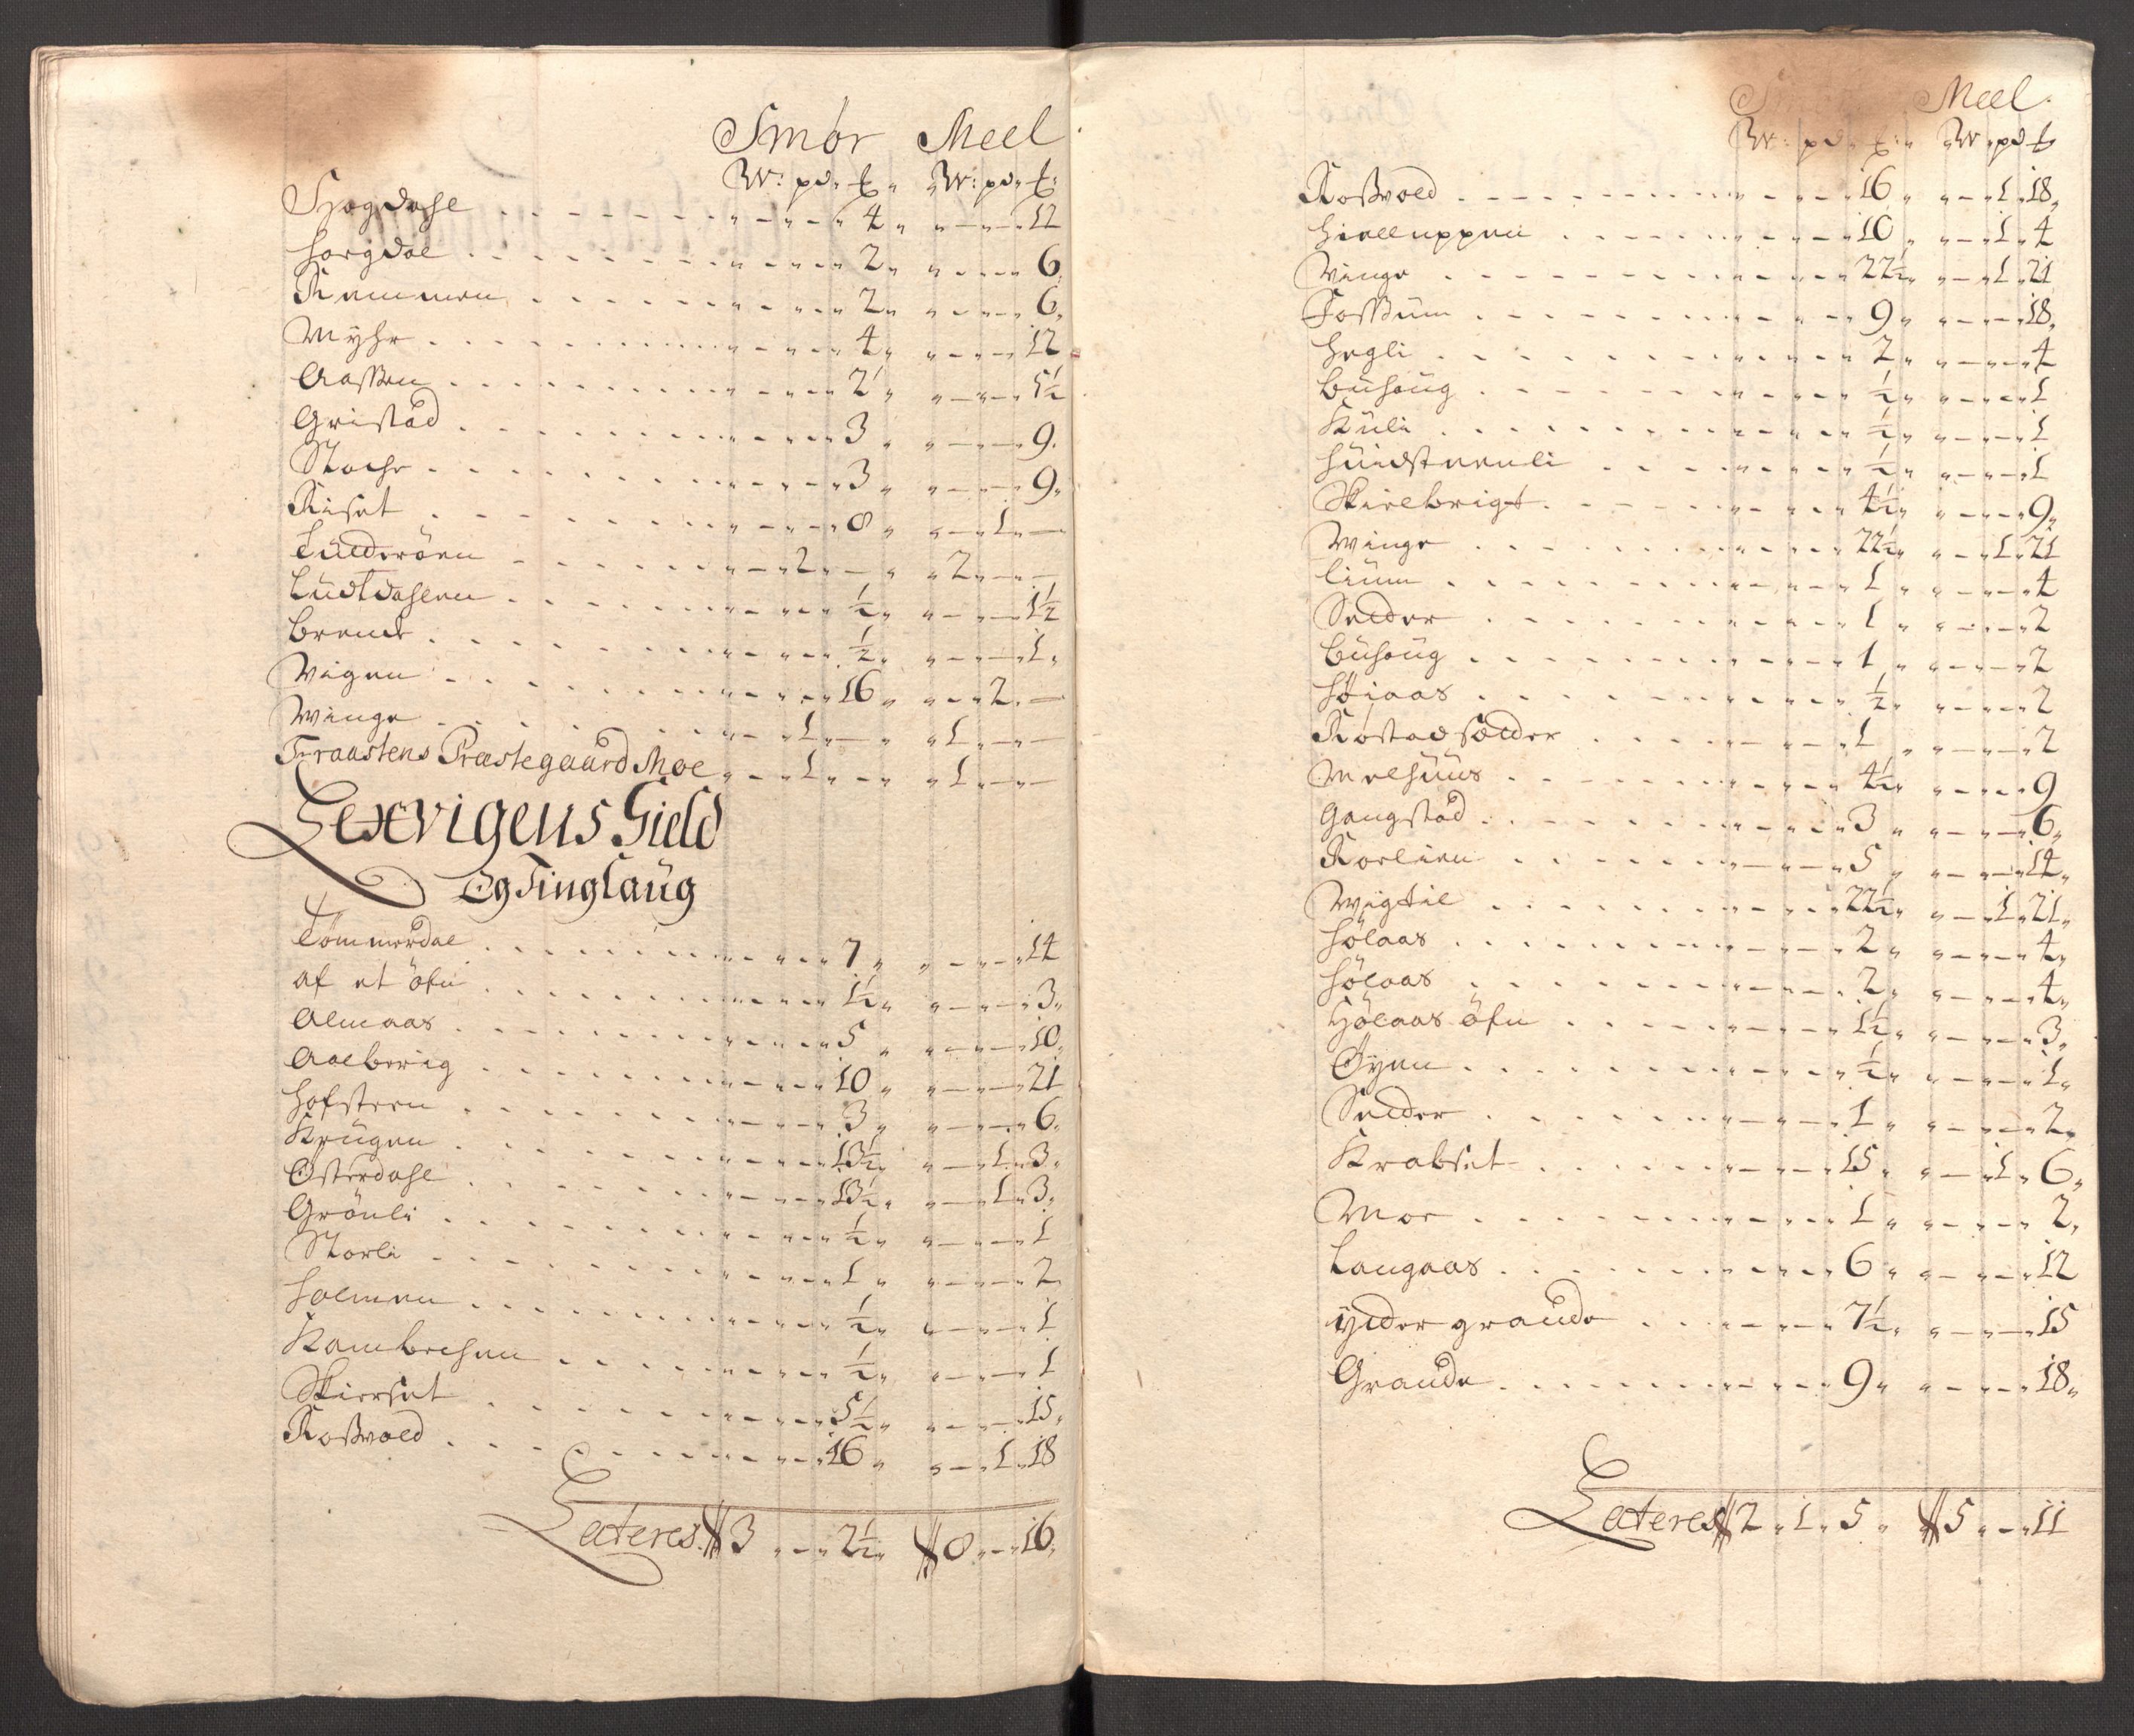 Smør Meel
W: pd. ℔. W: pd. ℔:
Hogdahl 4 12
Horgdal 2 6
Remmen 2 6
Myhr 4 12
Aassen 2 5½
Gristad 3 9.
Stoche 3 9.
Riset 8 1 —
Tuldrøen 2 — 2 — —
Ludtdahlen ½ 1½
Brende ½ 1.
Wigen 16 2. —
Winge 1 — 1 — —
Fraastens Præstegaard Moe 1 — 1 — —
Lexvigens Gield
Og Tinglaug
Tömmerdal 7 14
af et öfn 1½ 3.
Almaas 5 10.
Aalberig 10 21
Hofsteen 3 6.
Krügen 13½ 1 3.
Österdahl 13½ 1 3.
Grönli ½ 1
Storli 1 2
Holmen ½ 1
Kambrehen ½ 1
Skierset 5½ 15.
Roßvold 16 1 18
Lateres 3 — 2½ 8 — 16.
Smør Meel.
W: pd. ℔: W. pd ℔
Roßvold 16 1 18.
Hielluppen 10 1 4
Winge 22½ 1 21
Fossum 9 18.
Hegli 2 4
Buhaug ½ 1
Kuli ½ 1
Huidsteenli ½ 1
Skielbrigt 4½ 9.
Winge 22½ 1 21
Lium 1 4
Selder 1 2
Buhaug 1 2
Høiaas ½ 2
Røstad sælder 1 2
Melhuus 4½ 9
Gangstad 3 6.
Korlien 5 14.
Wigtil 22½ 1 21.
Hölaas 2 4.
Hölaas 2 4.
Hölaas öfn 1½ 3.
Øyen ½ 1.
Selder 1 2.
Krabset 15 1 6.
Moe 1 2.
Langaas 6 12
yider grande 7½ 15
Grande 9 18.
Lateres 2 1 5 5 — 11